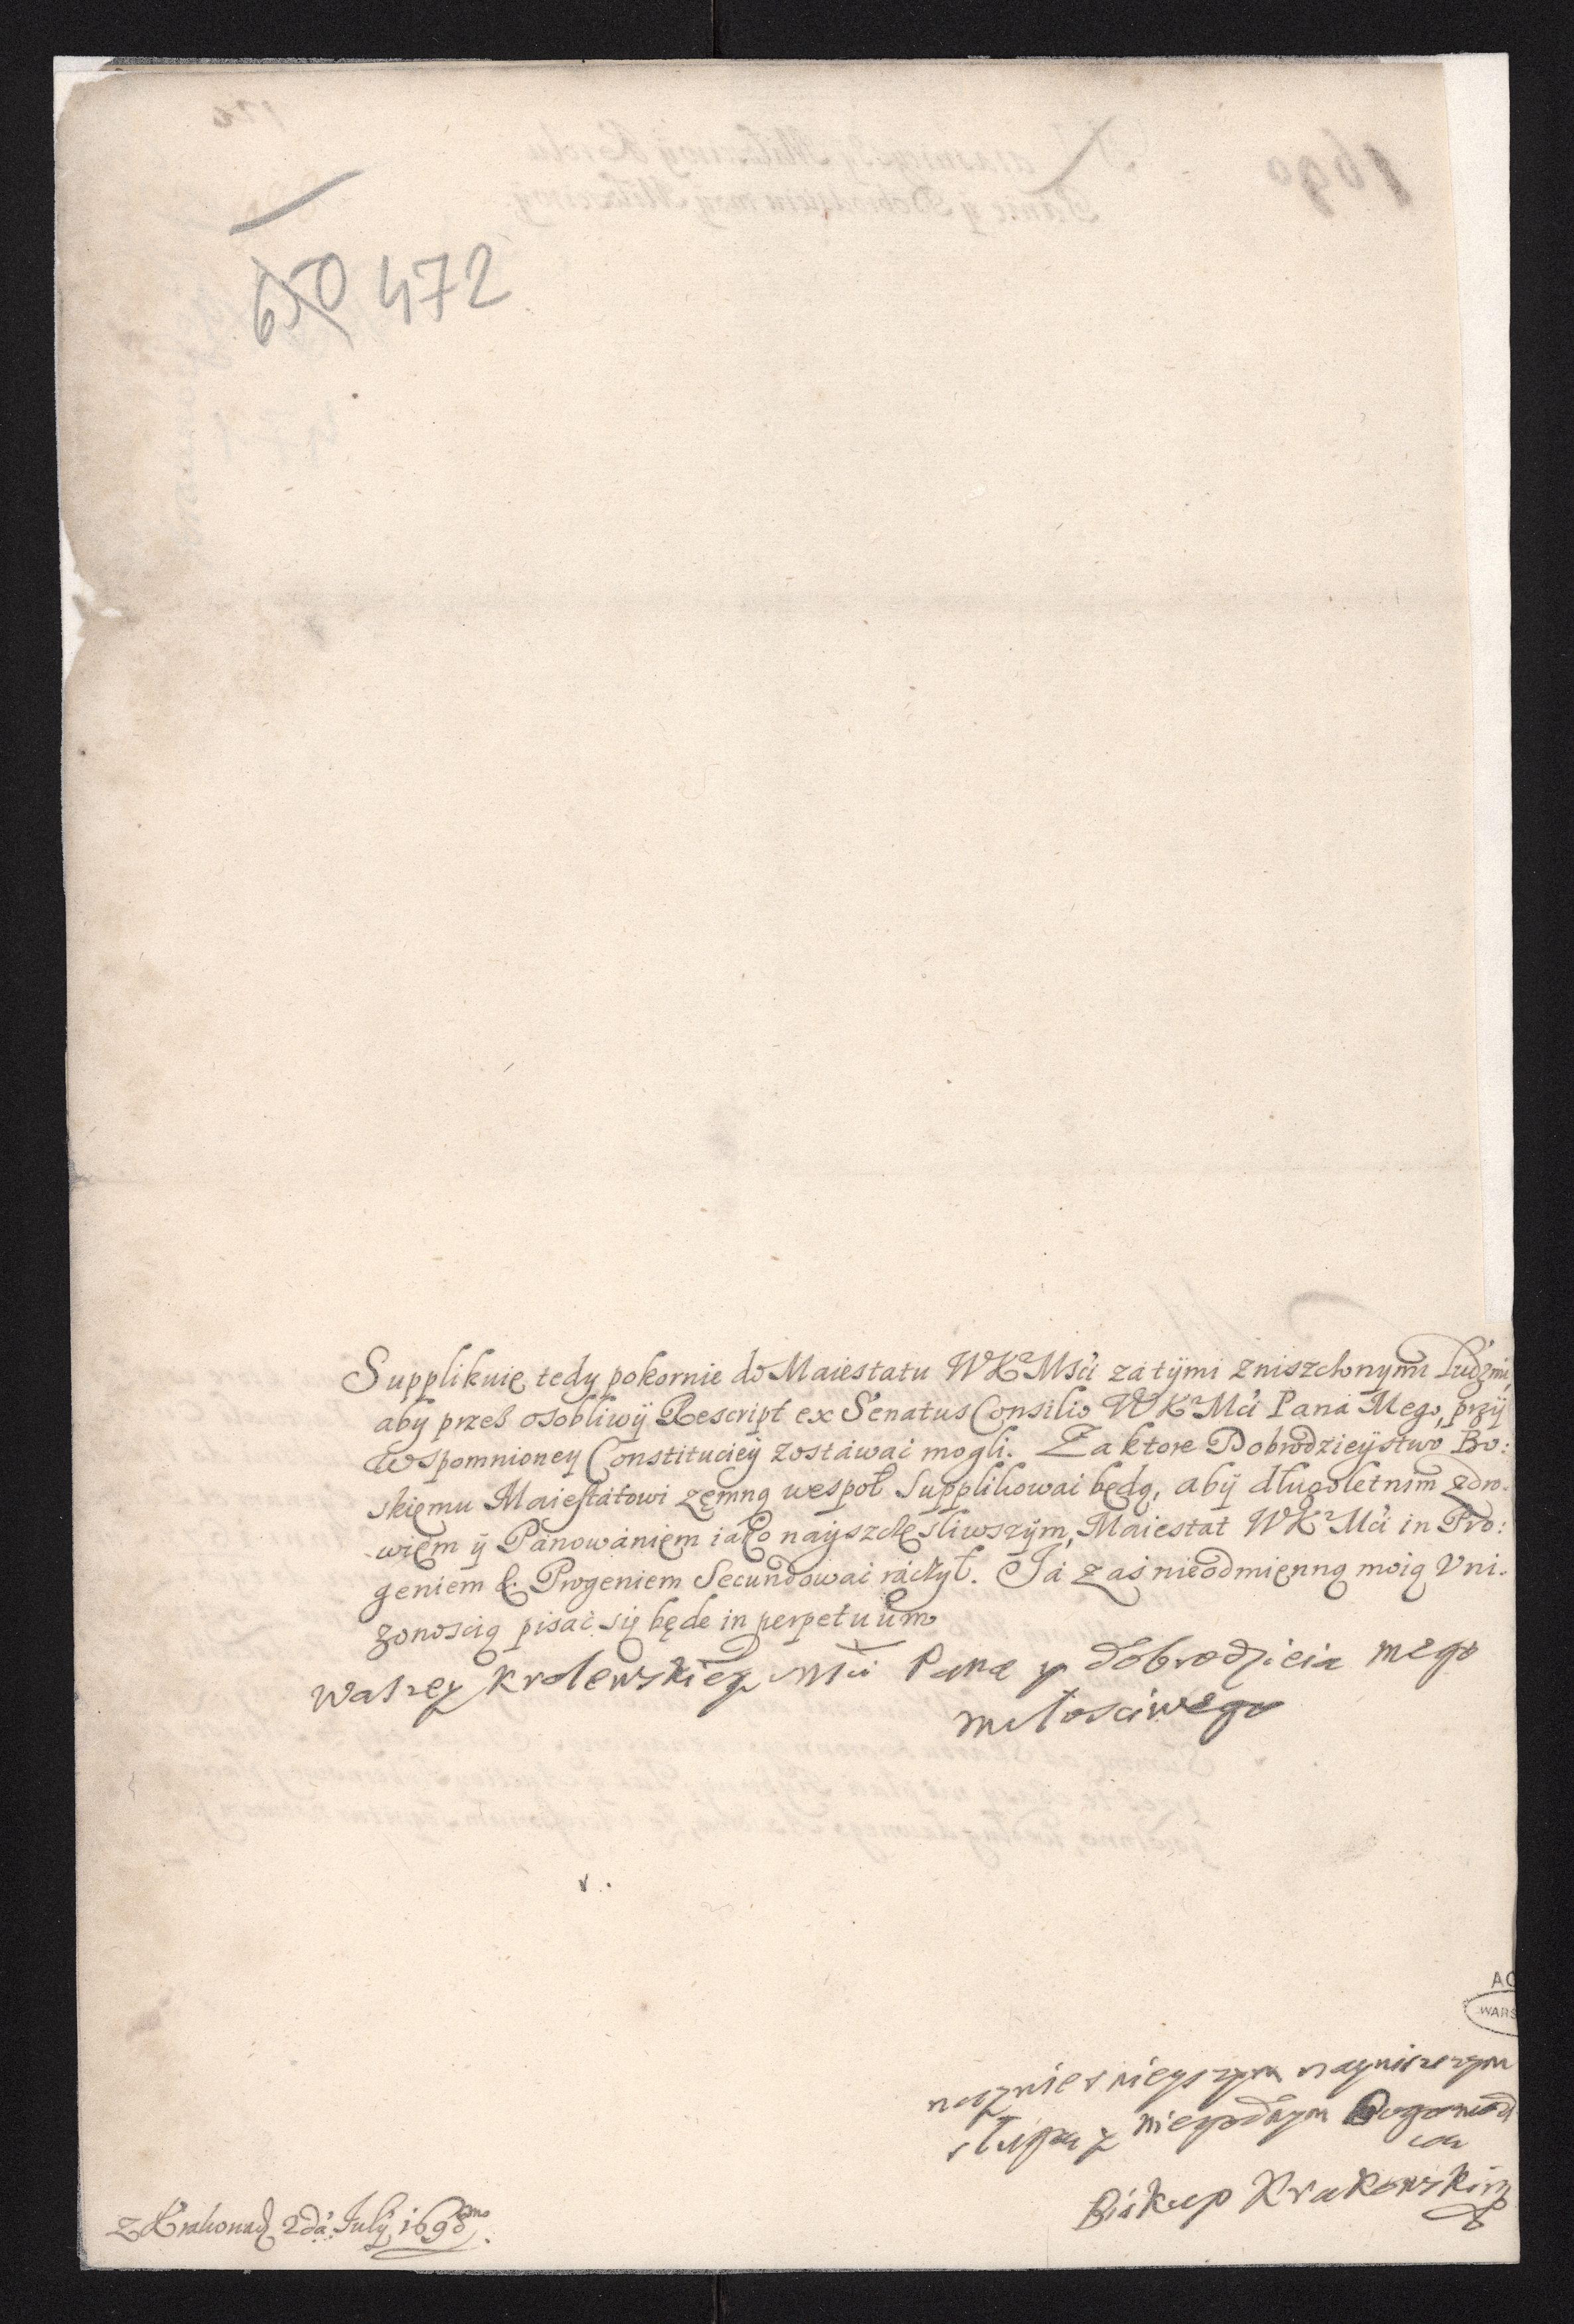 650 472
Supplikuię tedy pokornie do Maiestatu WKMsći zá tÿmi zniszchonymi ludzmi,
aby przes osobliwÿ Rescript ex Senatus Consilio WKMći Paná Mego, przÿ
wspomnioney Constituciey zostáwać mogli. Za ktore Dobrodzieÿstwo Bo:
skięmu Maiestátowi zęmną wespoł supplikowac będą, abÿ długoletnim zdro-
więm ÿ Pánowánięm iáko naÿszchęsliwszÿm, Maiestat WKMći in Pro:
geniem & Progeniem Secundowac ráchÿł. Já zaś nieodmięnną moią Vni-
zonoscią pisać się będe in perpetuum
Waszey Krolewskiey Msci Pana y dobrodzieia mego
miłosciwego
naynisszym
sługą y niegodnym Bogomod
lcą
Biskup Krakowski
z Krakowa 2da July 1698
WARS